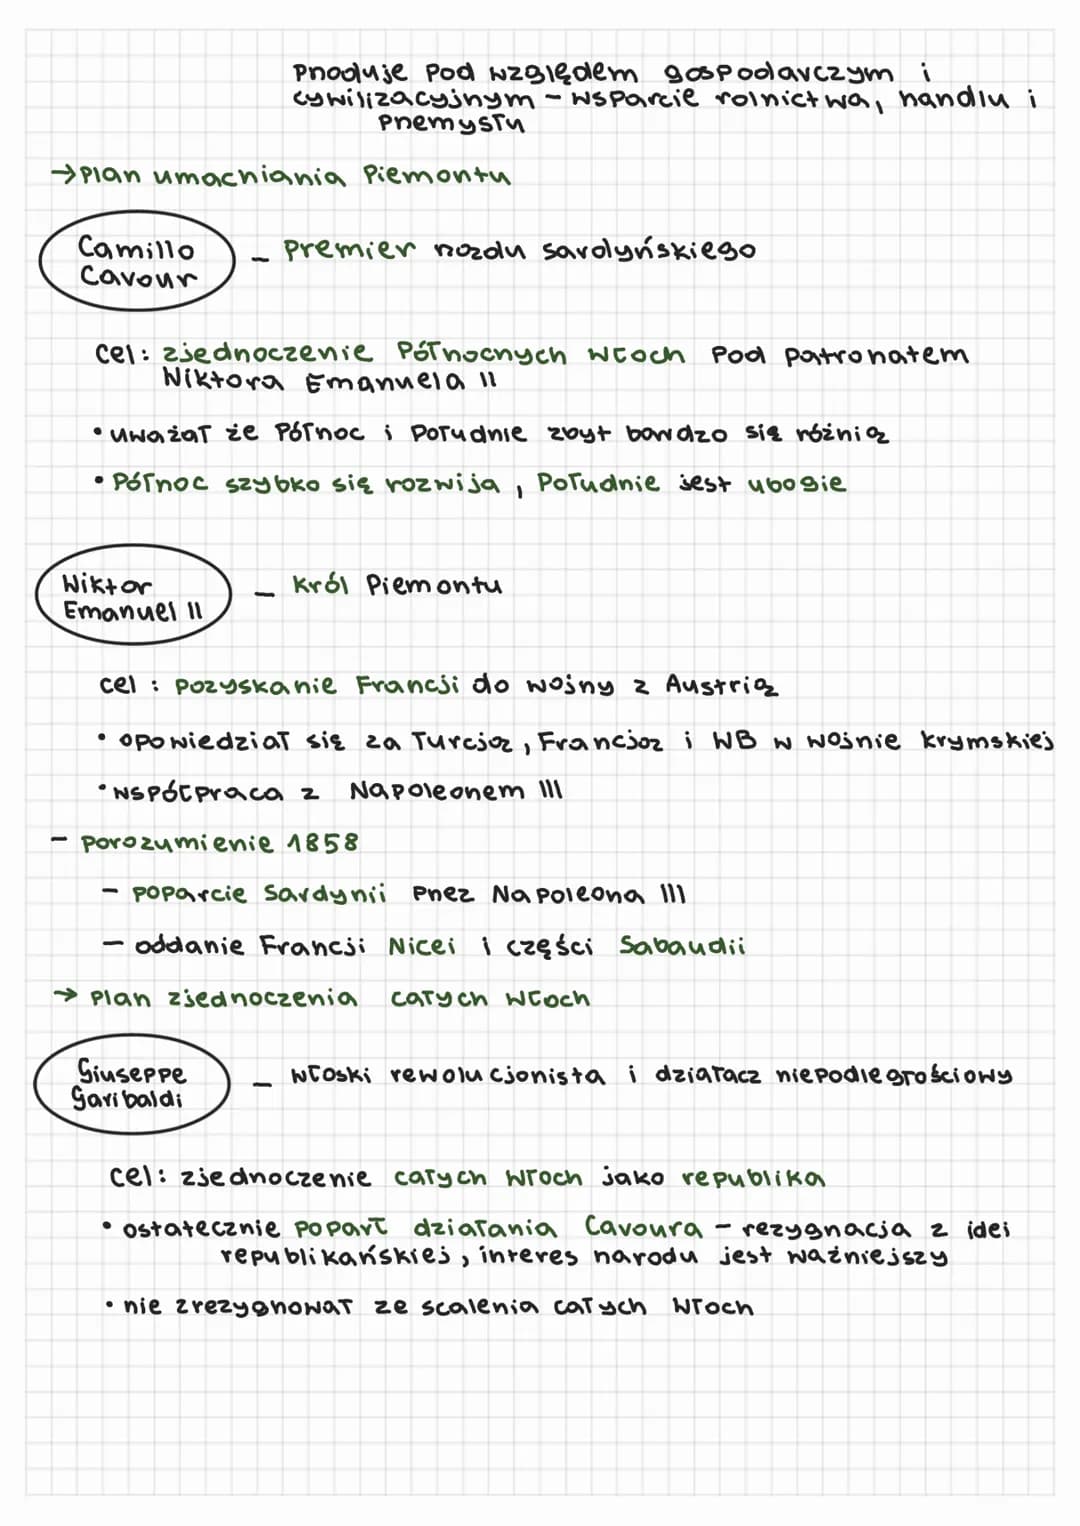 przoduje pod względem gospodarczym i
cywilizacyjnym - wsparcie rolnictwa, handlu i
przemysłu
→ Plan umacniania Piemontu
Camillo
Cavour
- premier rządu sardyńskiego
cel: zjednoczenie Północnych Włoch pod patronatem
Wiktora Emanuela II
• uważał że Północ i Południe zbyt bardzo się różnią
• Północ szybko się rozwija, Południe jest ubogie
Wiktor
Emanuel II
- król Piemontu
cel: pozyskanie Francji do wojny z Austrią
• opowiedział się za Turcją, Francją i WB w wojnie krymskiej
• współpraca z Napoleonem III
- porozumienie 1858
- poparcie Sardynii przez Napoleona III
- oddanie Francji Nicei i części Sabaudii
→ Plan zjednoczenia całych Włoch
Giuseppe
Garibaldi
- włoski rewolucjonista i działacz niepodległościowy
cel: zjednoczenie całych Włoch jako republika
• ostatecznie poparł działania Cavoura - rezygnacja z idei
republikańskiej, interes narodu jest ważniejszy
• nie zrezygnował ze scalenia całych Włoch